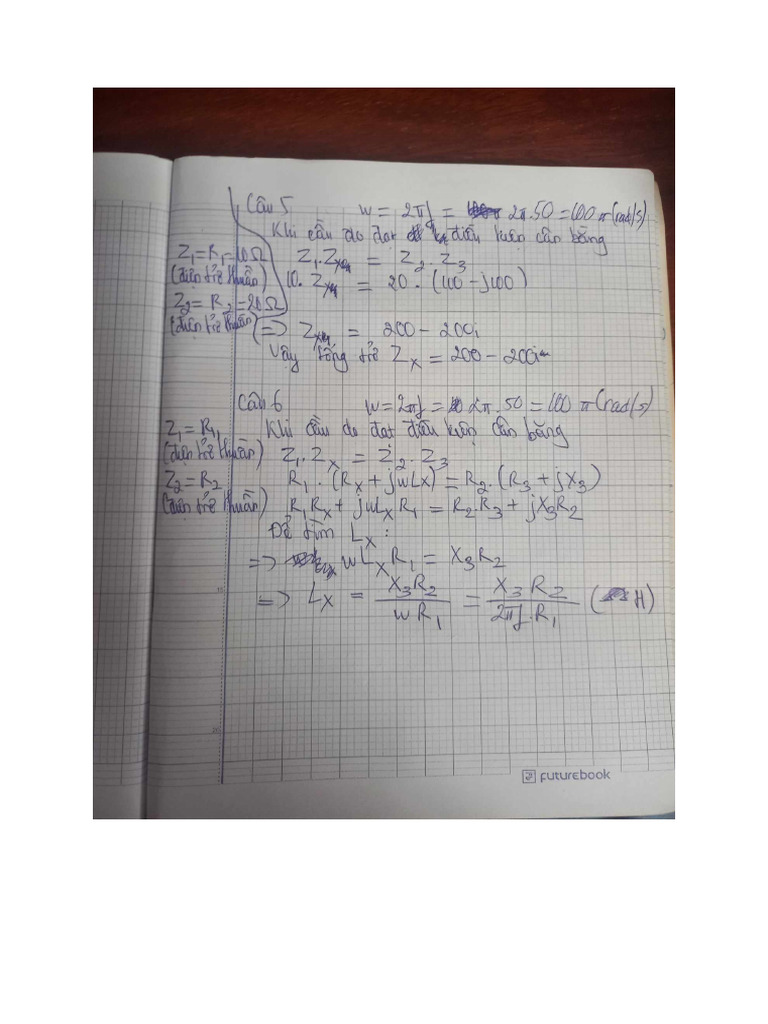 Câu 5 w = 2πf = 2π.50 = 100π (rad/s)
Khi cầu đo đạt điều kiện cân bằng
Z₁ = R₁ = 10Ω
(điện trở thuần)
Z₂ = R₂ = 20Ω
(điện trở thuần)
Z₁.Zₓ = Z₂.Z₃
10.Zₓ = 20.(100-j100)
=> Zₓ = 200 - 200i
Vậy tổng trở Zₓ = 200 - 200i
Câu 6 w = 2πf = 2π.50 = 100π (rad/s)
Z₁ = R₁
(điện trở thuần)
Z₂ = R₂
(điện trở thuần)
Khi cầu đo đạt điều kiện cân bằng
Z₁.Zₓ = Z₂.Z₃
R₁.(Rₓ + jwLx) = R₂.(R₃ + jX₃)
R₁Rₓ + jwLₓR₁ = R₂R₃ + jX₃R₂
Để tìm Lₓ:
=> wLₓR₁ = X₃R₂
=> Lₓ = X₃R₂ / wR₁ = X₃R₂ / 2πf.R₁ (H)
futurebook